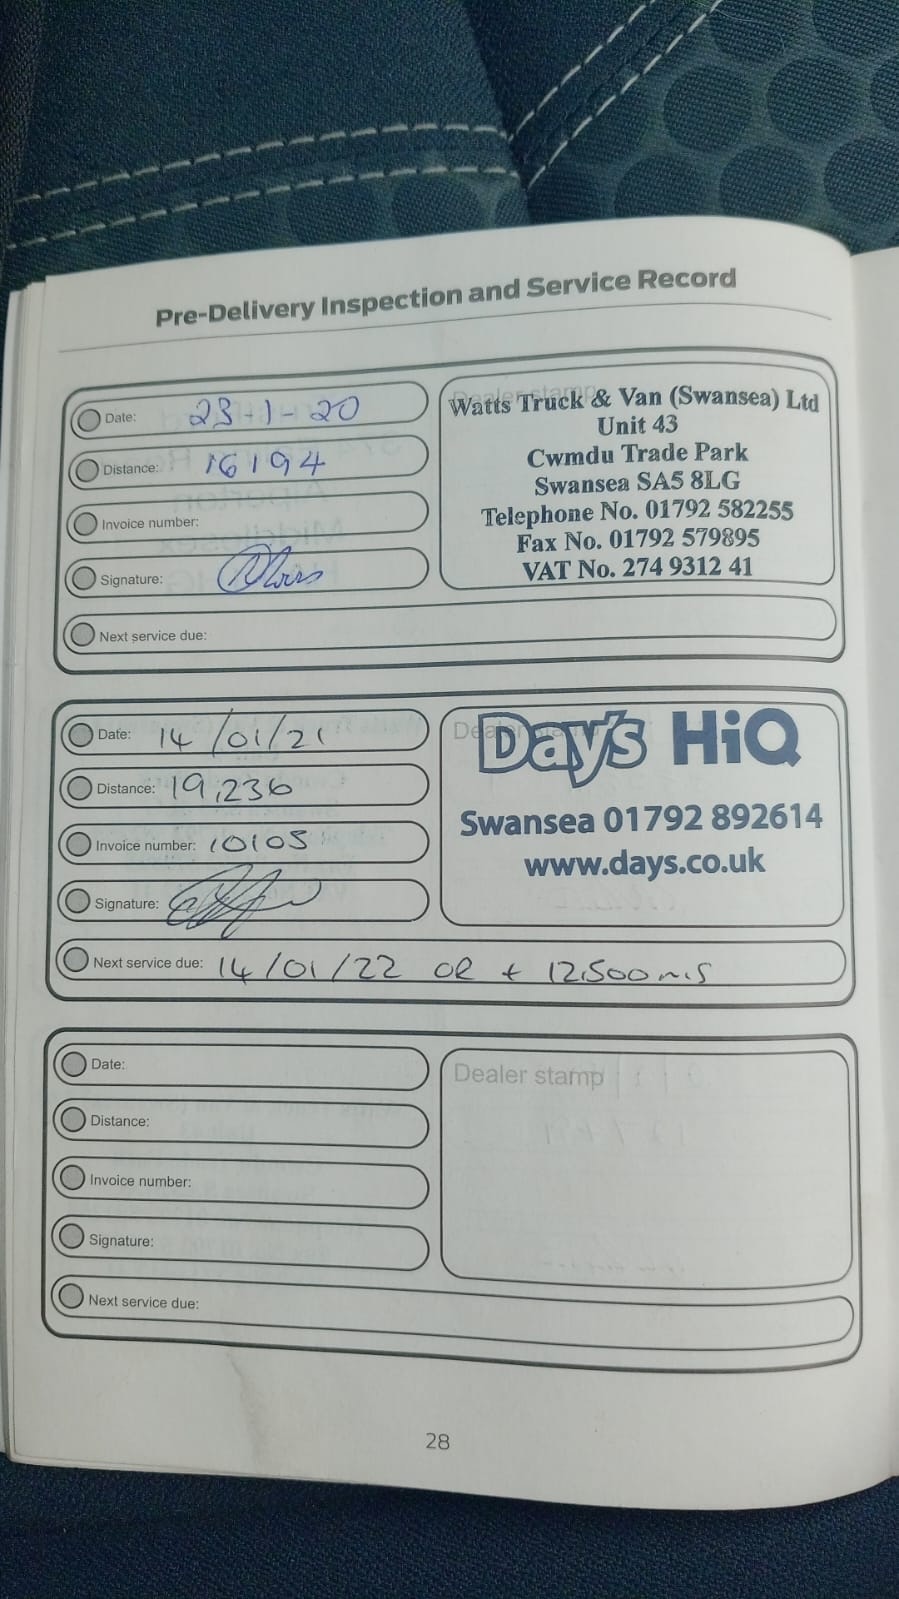 Pre-Delivery Inspection and Service Record
Date: 23-1-20
Distance: 16194
Invoice number:
Signature:
Next service due:
Watts Truck & Van (Swansea) Ltd
Unit 43
Cwmdu Trade Park
Swansea SA5 8LG
Telephone No. 01792 582255
Fax No. 01792 579895
VAT No. 274 9312 41
Date: 14/01/21
Distance: 19,236
Invoice number: 10105
Signature:
Next service due: 14/01/22 OR + 12,500 mls
Dealer stamp
Day's HiQ
Swansea 01792 892614
www.days.co.uk
Date:
Distance:
Invoice number:
Signature:
Next service due:
Dealer stamp
28